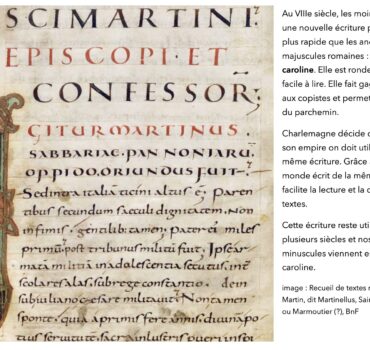 SCIMARTINI
EPISCOPI·ET
CONFESSOR
GITURMARTINUS
SABBARIAE·PANNONIARŪ
OPPIDO·ORIUNDUS FUIT
Sedintra italia ticini altus ē· Paren
tibus secundum saeculi dignitatem· Non
infimis· gentilib; tamen· pater ei miles
primū· post tribunus militū fuit· Ipse ar
matā militiā inadolescentia secutus· int
scolares alas· subrege constantio· dein
subiuliano cesare militavit· Nontamen
sponte· quia aprimis fere annis· divinam
potius servitute sacra illustris pueri inspi
Au VIIIe siècle, les moi
une nouvelle écriture p
plus rapide que les anc
majuscules romaines :
caroline. Elle est ronde
facile à lire. Elle fait gag
aux copistes et permet
du parchemin.
Charlemagne décide q
son empire on doit utili
même écriture. Grâce
monde écrit de la mêm
facilite la lecture et la c
textes.
Cette écriture reste uti
plusieurs siècles et nos
minuscules viennent e
caroline.
image : Recueil de textes r
Martin, dit Martinellus, Sain
ou Marmoutier (?), BnF